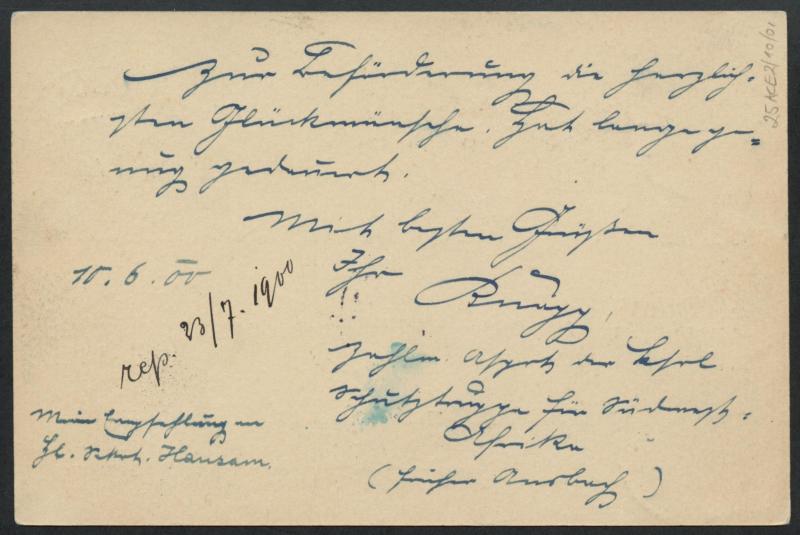 Zur Beförderung die herzlich-
sten Glückwünsche. Hat lange ge=
nug gedauert.
Mit besten Grüßen
10.6.00
Ihr
rep. 23/7. 1900
Zahlm. Aspt. der Kaiserl.
Schutztruppe für Südwest-
Afrika
(früher Ansbach)
Meine Empfehlung an
Hansam.